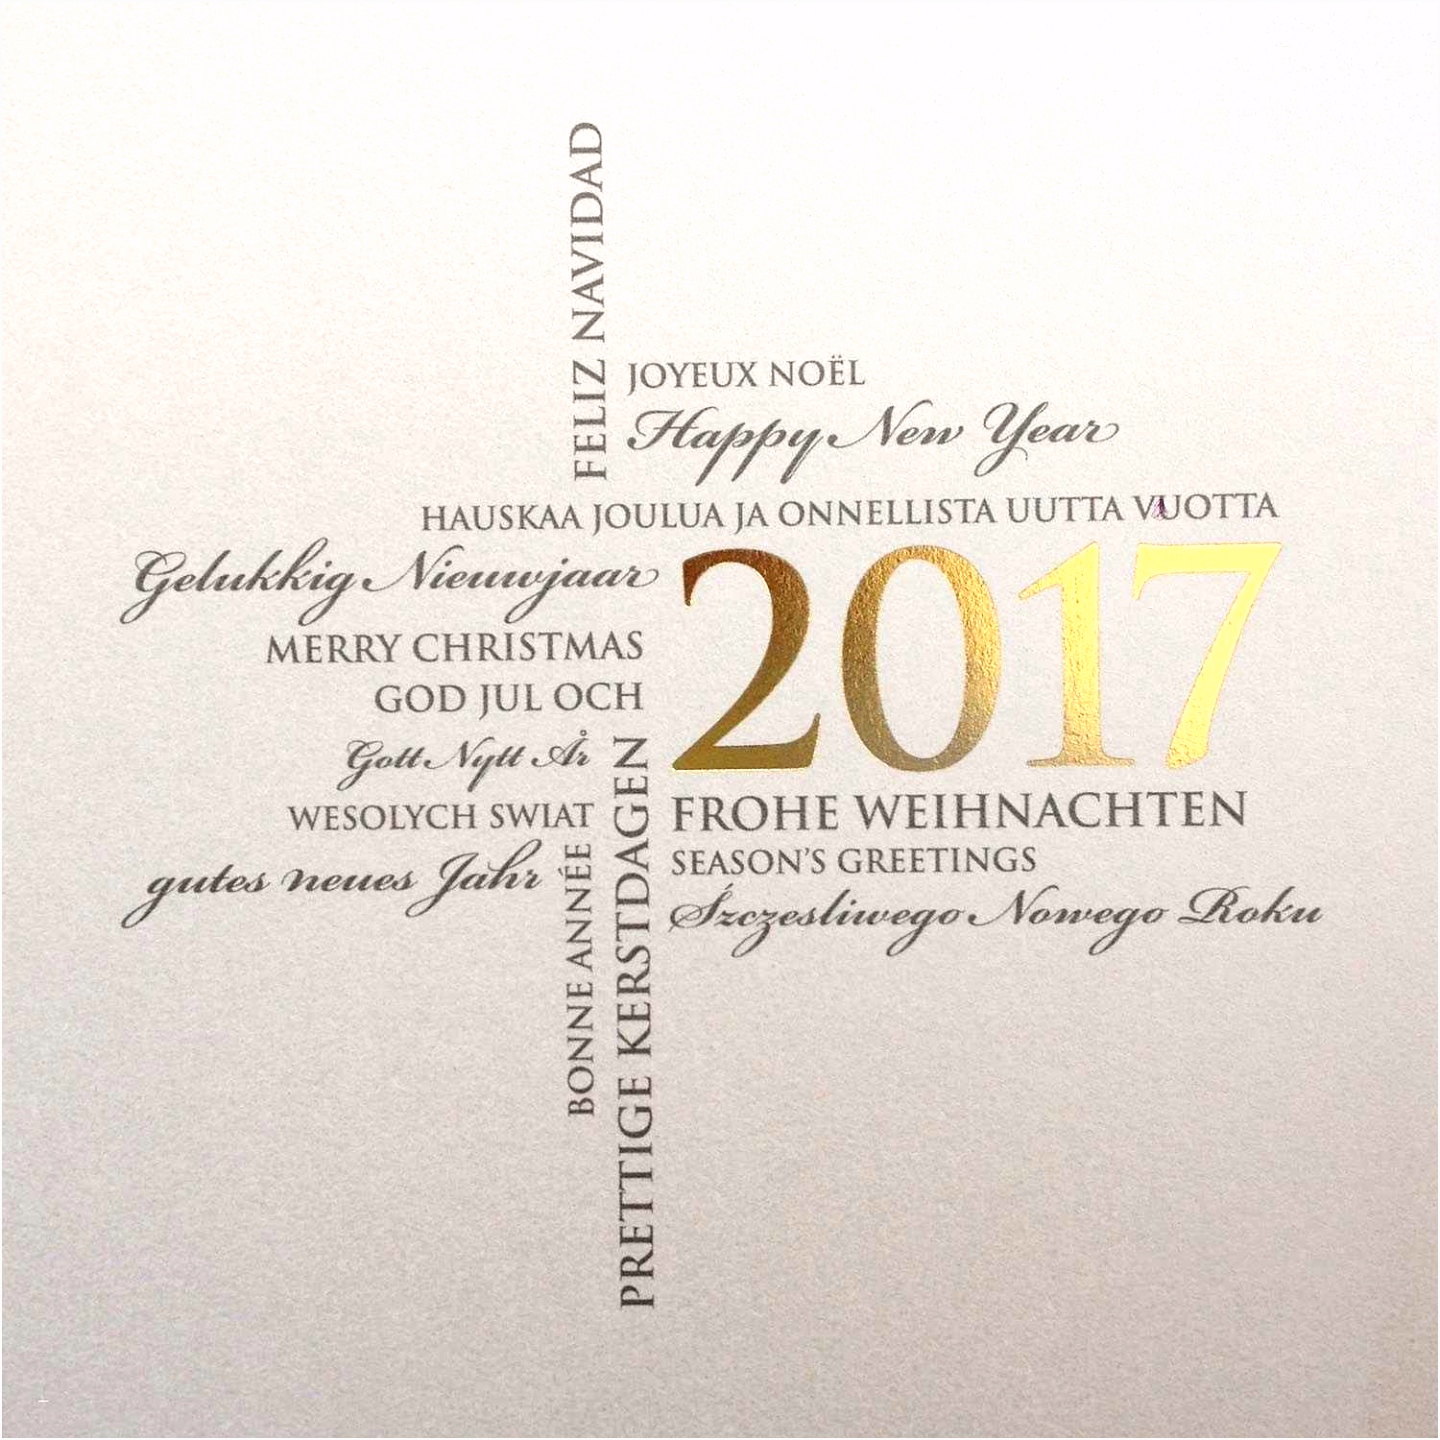 FELIZ NAVIDAD
JOYEUX NOËL
Happy New Year
HAUSKAA JOULUA JA ONNELLISTA UUTTA VUOTTA
Gelukkig Nieuwjaar
2017
MERRY CHRISTMAS
GOD JUL OCH
Gott Nytt År
WESOLYCH SWIAT
gutes neues Jahr
BONNE ANNÉE
PRETTIGE KERSTDAGEN
FROHE WEIHNACHTEN
SEASON'S GREETINGS
Śzczesliwego Nowego Roku